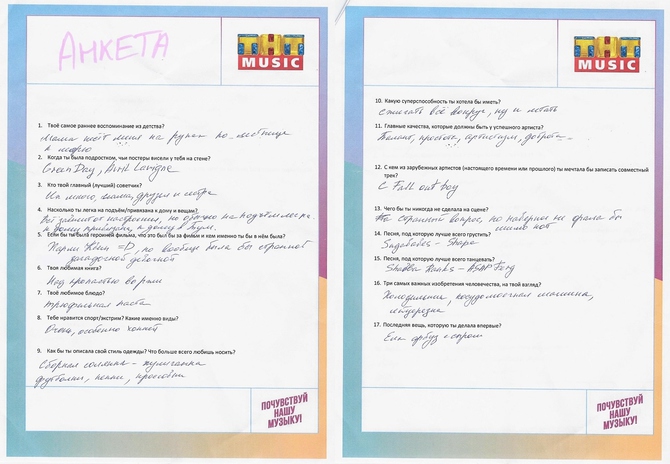 АНКЕТА
ТНТ
MUSIC
1. Твоё самое раннее воспоминание из детства?
Мама несёт меня на руках по лестнице
к морю
2. Когда ты была подростком, чьи постеры висели у тебя на стене?
Green Day, Avril Lavigne
3. Кто твой главный (лучший) советчик?
Их много, мама, друзья и сестра
4. Насколько ты легка на подъём/привязана к дому и вещам?
Всё зависит от настроения, но обычно на подъём легка.
к дому привязана, к дому в Туле.
5. Если бы ты была героиней фильма, что это был бы за фильм и кем именно ты бы в нём была?
=D, но вообще была бы странной
загадочной девочкой
6. Твоя любимая книга?
Над пропастью во ржи
7. Твоё любимое блюдо?
трюфельная паста
8. Тебе нравится спорт/экстрим? Какие именно виды?
Очень, особенно хоккей
9. Как бы ты описала свой стиль одежды? Что больше всего любишь носить?
Сборная солянка - хулиганка
футболки, кепки, кроссовки
ПОЧУВСТВУЙ
НАШУ
МУЗЫКУ!
ТНТ
MUSIC
10. Какую суперспособность ты хотела бы иметь?
сжигать всё вокруг, ну и летать
11. Главные качества, которые должны быть у успешного артиста?
Талант, простота, артистизм, доброта
12. С кем из зарубежных артистов (настоящего времени или прошлого) ты мечтала бы записать совместный
трек?
С Fall out boy
13. Чего бы ты никогда не сделала на сцене?
вопрос, но наверное не орала бы
мимо нот
14. Песня, под которую лучше всего грустить?
Sugababes - Shape
15. Песня, под которую лучше всего танцевать?
Shabba Ranks - A$AP Ferg
16. Три самых важных изобретения человечества, на твой взгляд?
Холодильник, посудомоечная машинка,
17. Последняя вещь, которую ты делала впервые?
Ела арбуз с сыром
ПОЧУВСТВУЙ
НАШУ
МУЗЫКУ!